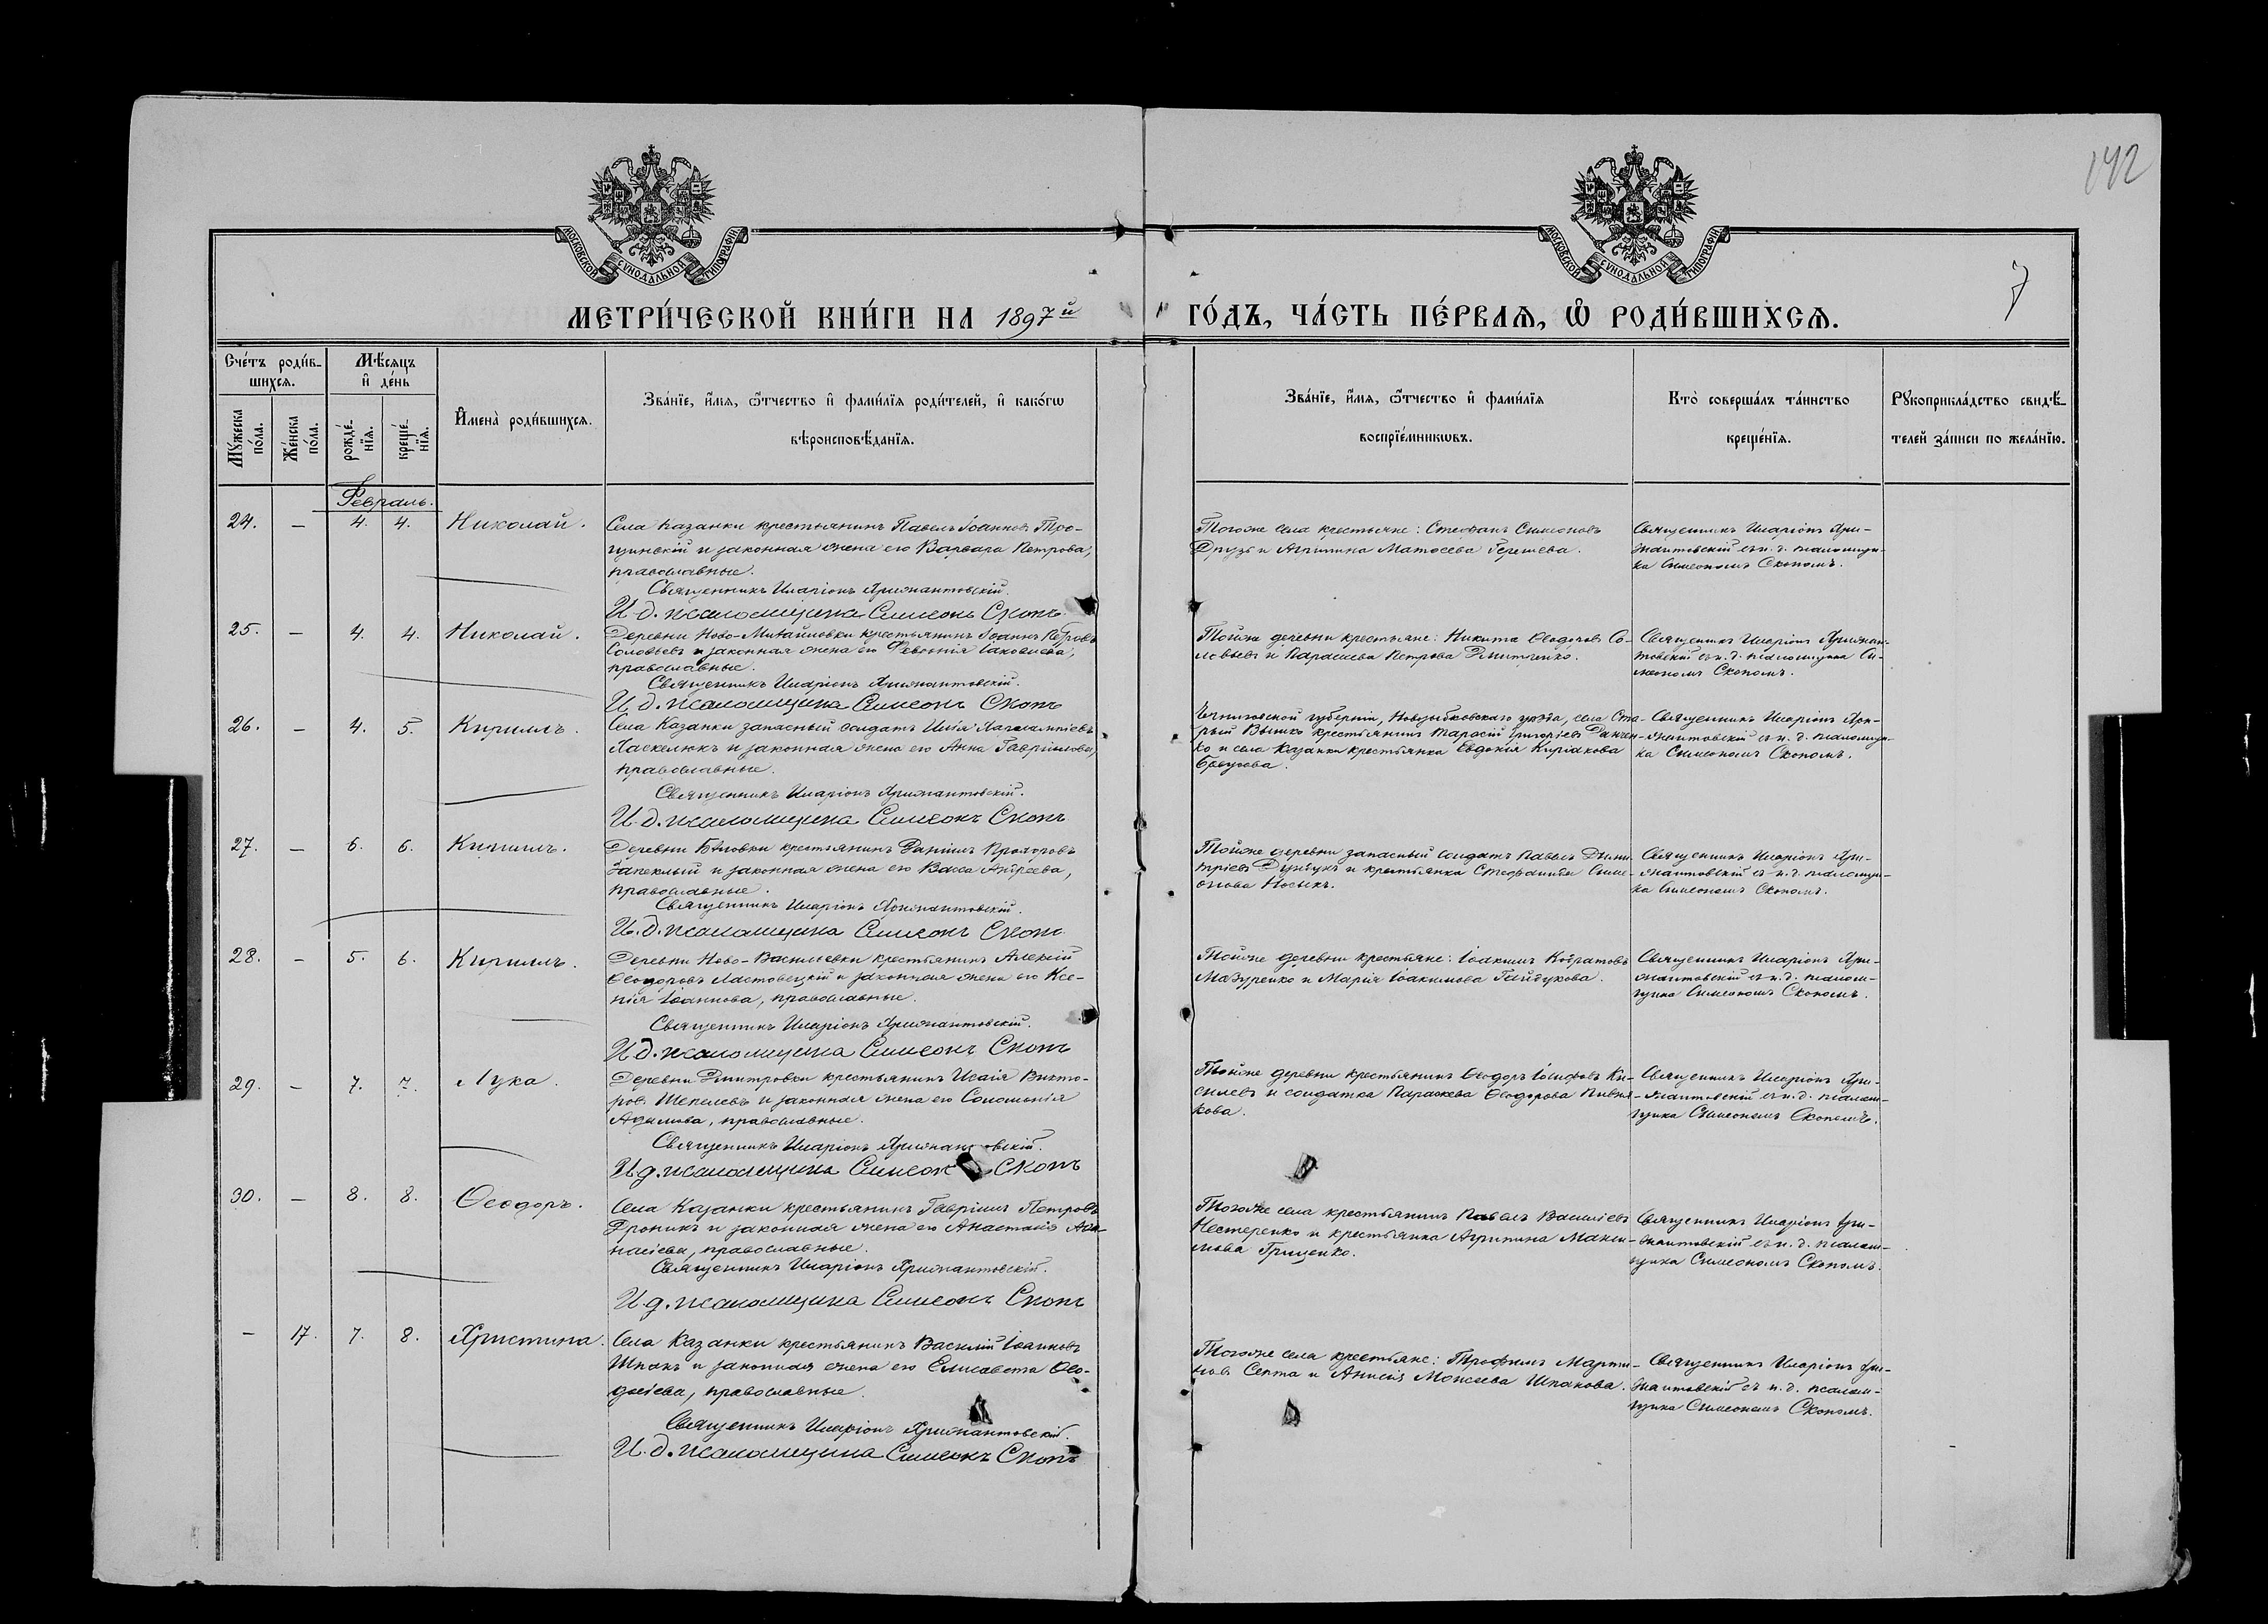 142
МОСКОВСКОЙ СУНОДАЛЬНОЙ ТИПОГРАФІИ
МОСКОВСКОЙ СУНОДАЛЬНОЙ ТИПОГРАФІИ
7
МЕТРИ́ЧЕСКОЙ КНИ́ГИ НА 1897й ГО́ДЪ, ЧА́СТЬ ПЕ́РВАѦ, Ѡ РОДИ́ВШИХСѦ.
Сче́тъ роди́в-
шихсѧ.
Мѣ́сѧцъ
и҆ де́нь
Мꙋ́жеска по́ла.
Же́нска по́ла.
рожде́-
нїѧ.
креще́-
нїѧ.
И҆мена̀ роди́вшихсѧ.
Зва́нїе, и҆́мѧ, ѻ҆́тчество и҆ фами́лїѧ роди́телей, и҆ како́гѡ
вѣроисповѣ́данїѧ.
Зва́нїе, и҆́мѧ, ѻ҆́тчество и҆ фами́лїѧ
воспрїе́мникѡвъ.
Кто̀ соверша́лъ та́инство
креще́нїѧ.
Рꙋкоприкла́дство свидѣ́-
телей за́писи по жела́нїю.
Февраль.
24. — 4. 4. Николай.
Села Казанки крестьянинъ Павелъ Іоанновъ Тро-
щинскій и законная жена его Варвара Петрова,
православные.
Священникъ Иларіонъ Хрижантовскій.
И. д. псаломщика Симеонъ Скопъ
Тогоже села крестьяне: Стефанъ Симеоновъ
Друзь и Агрипина Матѳеева Герешева.
Священникъ Иларіонъ Хри-
жантовскій съ и. д. псаломщи-
ка Симеономъ Скопомъ.
25. — 4. 4. Николай.
Деревни Ново-Михайловки крестьянинъ Іоаннъ Петровъ
Соловьевъ и законная жена его Февронія Іаковлева,
православные.
Священникъ Иларіонъ Хрижантовскій.
И. д. псаломщика Симеонъ Скопъ
Тойже деревни крестьяне: Никита Ѳеодоровъ Со-
ловьевъ и Параскева Петрова Дмитренко.
Священникъ Иларіонъ Хрижан-
товскій съ и. д. псаломщика Си-
меономъ Скопомъ.
26. — 4. 5. Кириллъ.
Села Казанки запасный солдатъ Илія Харлампіевъ
Хаскелюкъ и законная жена его Анна Гавріилова,
православные.
Священникъ Иларіонъ Хрижантовскій.
И. д. псаломщика Симеонъ Скопъ
Черниговской губерніи, Новозыбковскаго уѣзда, села Ста-
рый Вышко крестьянинъ Тарасій Григоріевъ Данчен-
ко и села Казанки крестьянка Евдокія Киріакова
Священникъ Иларіонъ Хри-
жантовскій съ и. д. псаломщи-
ка Симеономъ Скопомъ.
27. — 6. 6. Кириллъ.
Деревни Бѣловки крестьянинъ Даніилъ Прохоровъ
Запеклый и законная жена его Васса Андреева,
православные.
Священникъ Иларіонъ Хрижантовскій.
И. д. псаломщика Симеонъ Скопъ
Тойже деревни запасный солдатъ Павелъ Дими-
тріевъ и крестьянка Стефанида Симе-
онова Носыкъ.
Священникъ Иларіонъ Хри-
жантовскій съ и. д. псаломщи-
ка Симеономъ Скопомъ.
28. — 5. 6. Кириллъ.
Деревни Ново-Василіевки крестьянинъ Алексій
Ѳеодоровъ Ластовецкій и законная жена его Ксе-
нія Іоаннова, православные.
Священникъ Иларіонъ Хрижантовскій.
И. д. псаломщика Симеонъ Скопъ
Тойже деревни крестьяне: Іоакимъ Кодратовъ
Мазуренко и Марія Іоакимова Гайдукова.
Священникъ Иларіонъ Хри-
жантовскій съ и. д. псалом-
щика Симеономъ Скопомъ.
29. — 7. 7. Лука.
Деревни Дмитровки крестьянинъ Исаія Викто-
ровъ Шепелевъ и законная жена его Соломонія
Адамова, православные.
Священникъ Иларіонъ Хрижантовскій.
И. д. псаломщика Симеонъ Скопъ
Тойже деревни крестьянинъ Ѳеодоръ Іосифовъ Ки-
селевъ и солдатка Параскева Ѳеодорова Пивня-
кова.
Священникъ Иларіонъ Хри-
жантовскій съ и. д. псалом-
щика Симеономъ Скопомъ.
30. — 8. 8. Ѳеодоръ.
Села Казанки крестьянинъ Гавріилъ Петровъ
Дроникъ и законная жена его Анастасія Аѳа-
насіева, православные.
Священникъ Иларіонъ Хрижантовскій.
И. д. псаломщика Симеонъ Скопъ
Тогоже села крестьянинъ Павелъ Василіевъ
Нестеренко и крестьянка Агрипина Макси-
мова Гриценко.
Священникъ Иларіонъ Хри-
жантовскій съ и. д. псалом-
щика Симеономъ Скопомъ.
— 17. 7. 8. Христина.
Села Казанки крестьянинъ Василій Іоанновъ
Шпакъ и законная жена его Елисавета Ѳео-
досіева, православные.
Священникъ Иларіонъ Хрижантовскій.
И. д. псаломщика Симеонъ Скопъ
Тогоже села крестьяне: Трофимъ Марти-
новъ Септа и Анисія Моисеева Шпакова.
Священникъ Иларіонъ Хри-
жантовскій съ и. д. псалом-
щика Симеономъ Скопомъ.